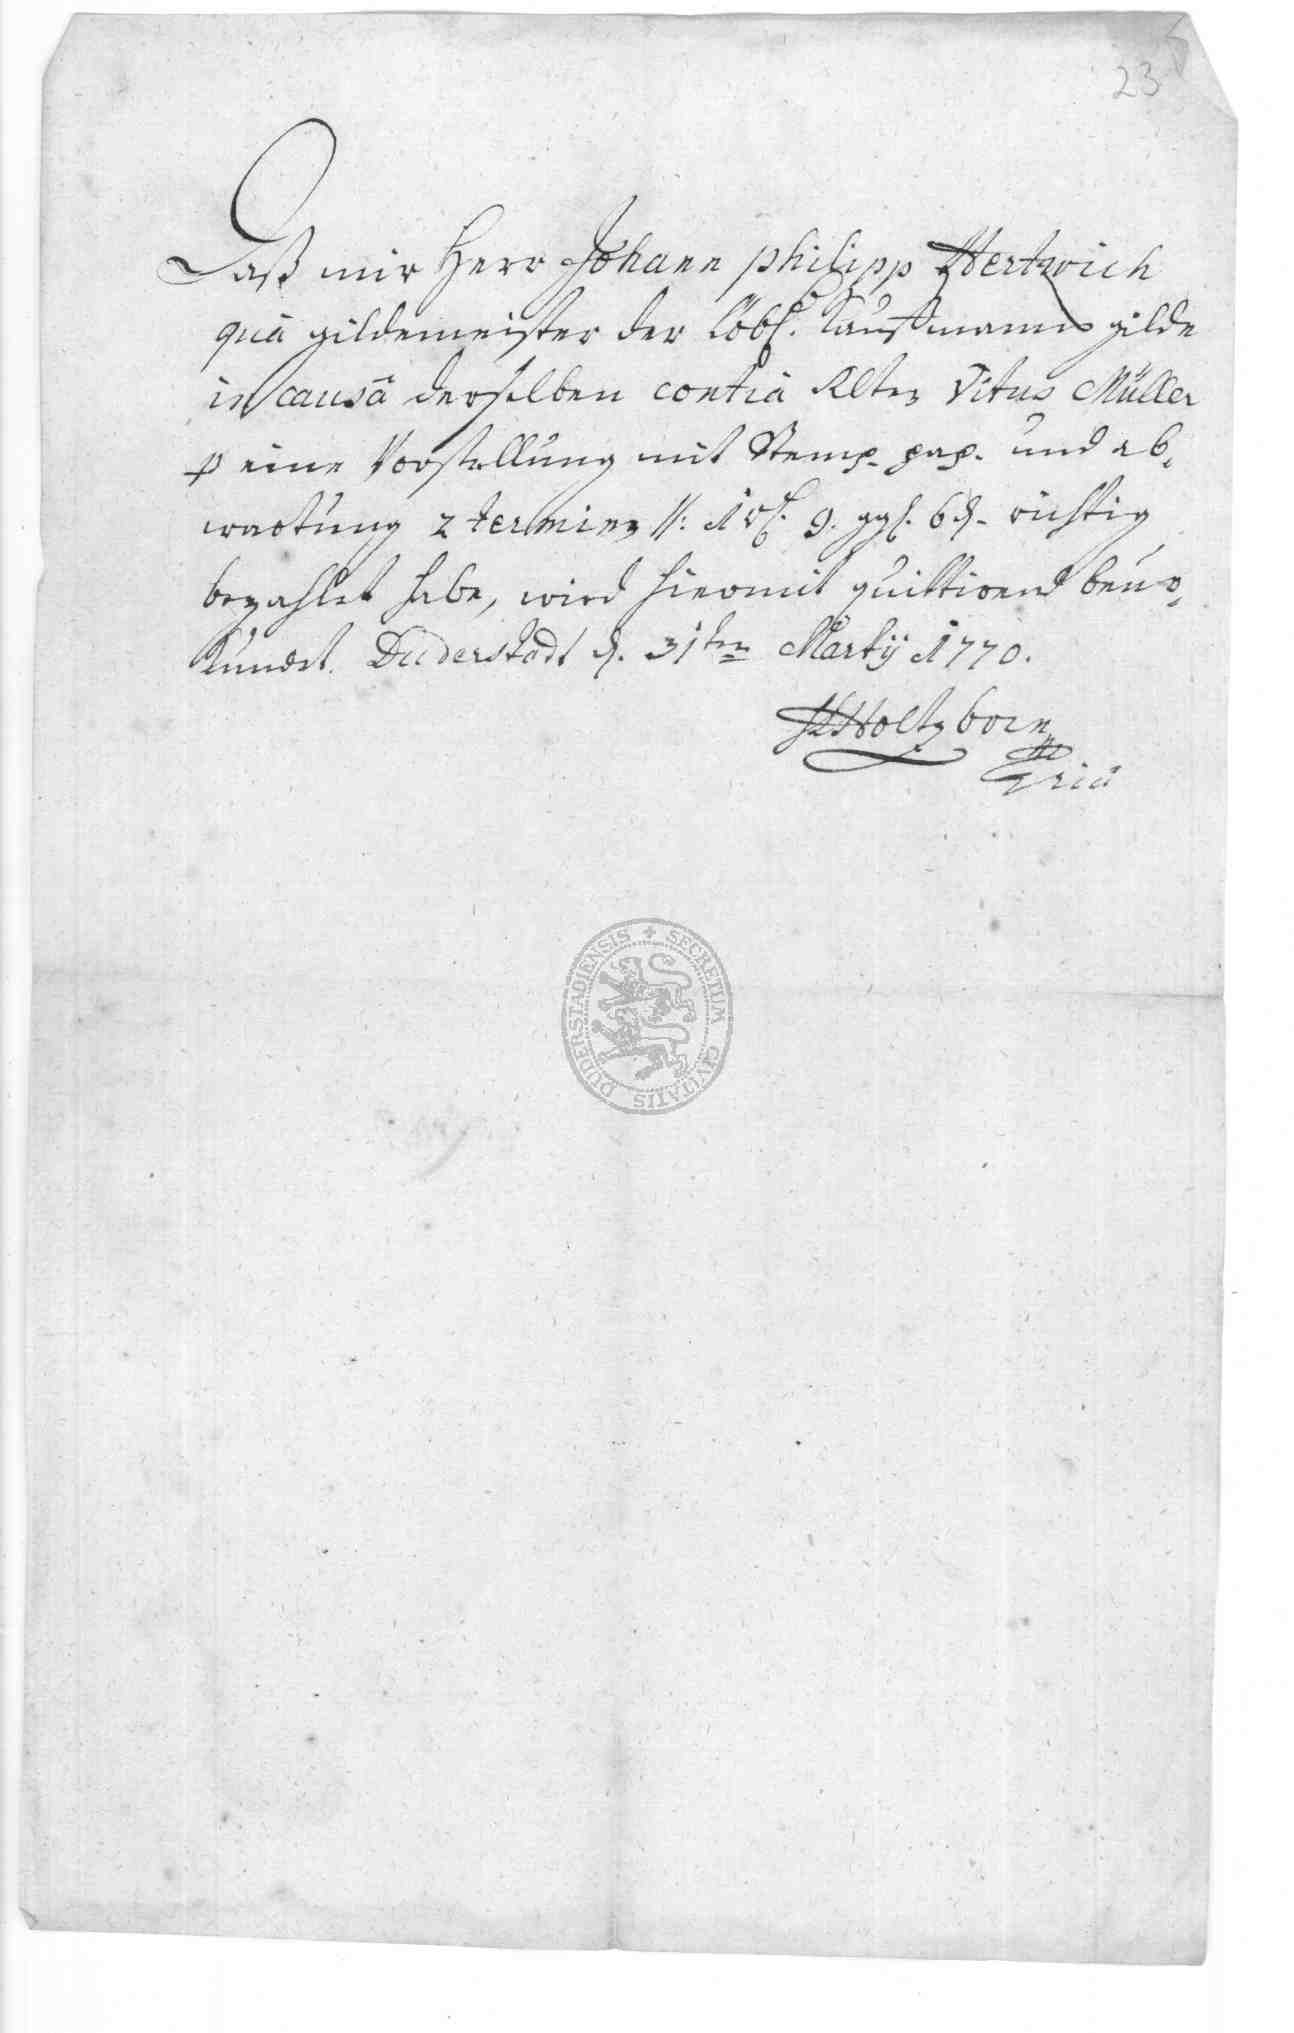 23
Daß mir Herr Johann Philipp Hertwich
quà gildemeister der löbl. Kauffmanns gilde
in causâ derselben contrà Alten Vitus Müller
p eine Vorstellung mit Stemp. pap. und ab,
wartung 2 terminen //: 1 rl. 9. ggl. 6 d. richtig
bezahlet habe, wird hiermit quittirend beur,
kundet. Duderstadt d. 31ten Martij 1770.
Holtzborn
SECRETUM CIVITATIS DUDERSTADIENSIS